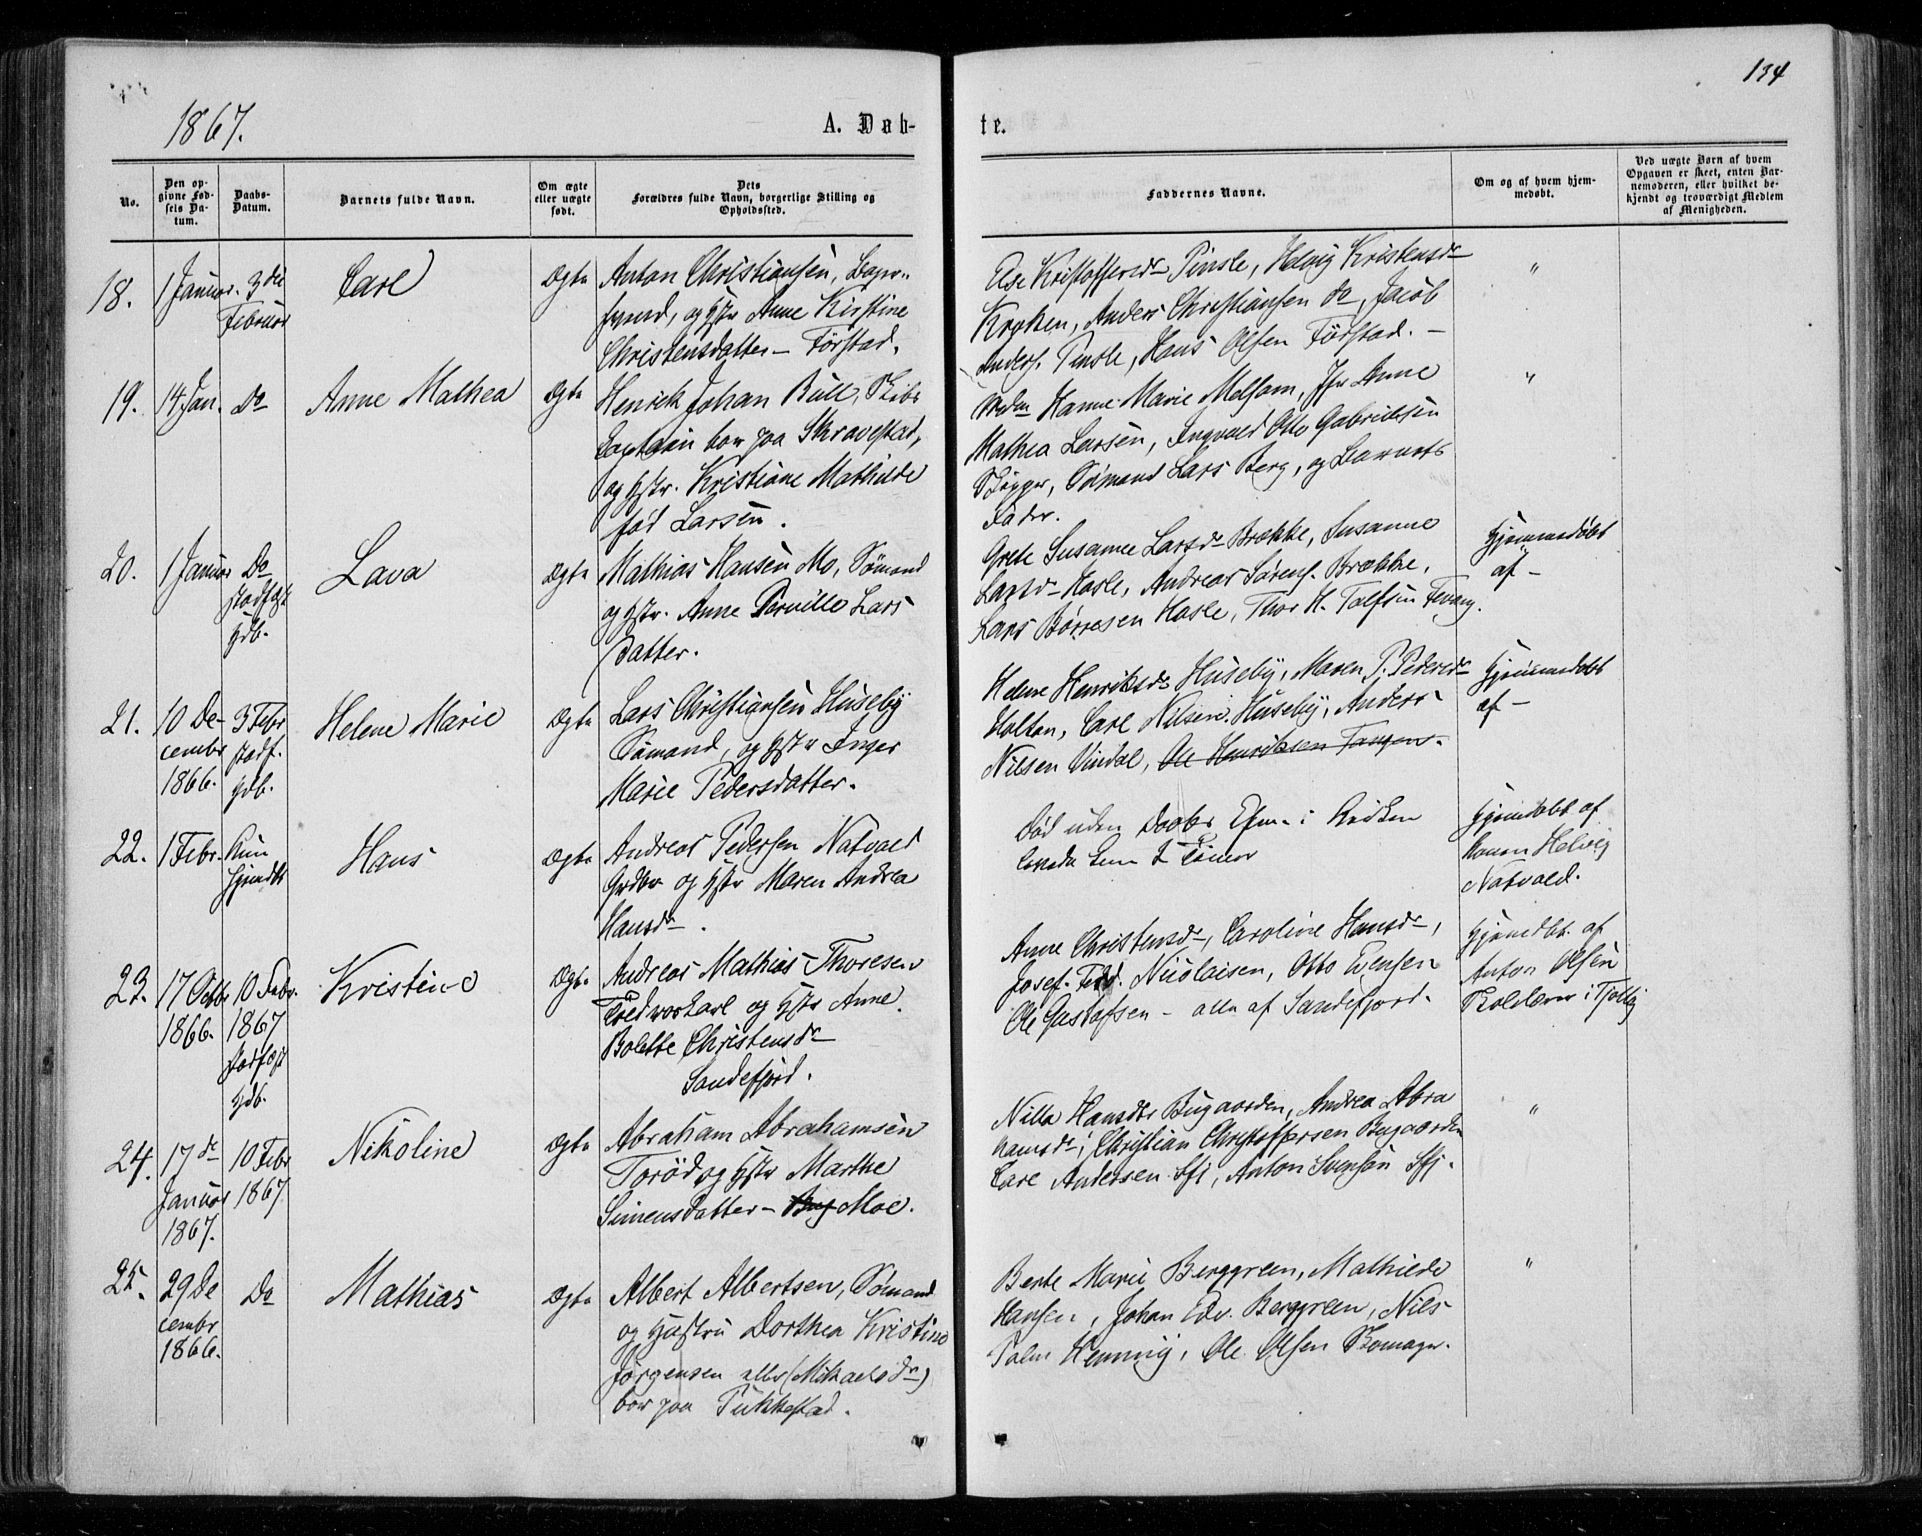 134
1867.
A. Døb-
te.
No.
Den op-
givne Fød-
sels Da-
tum.
Daabs-
Datum.
Barnets fulde Navn.
Om ægte
eller uægte
født.
Dets
Forældres fulde Navn, borgerlige Stilling og
Opholdssted.
Faddernes Navne.
Om og af hvem hjem-
medøbt.
Ved uægte Børn af hvem
Opgaven er skeet, enten Bar-
nemoderen, eller hvilket be-
kjendt og troværdigt Medlem
af Menigheden.
18.
1 Januar.
3die
Februar
Carl
Ægte
Anton Christiansen,
og Hstr Anne Kirstine
Christensdatter – Førstad.
Åse Kristoffersdr Pinsle, Helvig Kristensdr
Krokken, Anders Christiansen do, Jacob
Anders. Pinsle, Hans Olsen Førstad. –
"
19.
14 Jan.
Do
Anne Mathea
Ægte
Henrick Johan Bull, Skibs
Captain bor paa Skravestad,
og Hstr. Kristiane Mathilde
fød Larsen.
Hanne Marie Melsom, Jfr Anne
Mathea Larsen, Ingvald Otto Gabrielsen
Skipper, Sømand Lars Berg, og Barnets
Fader.
"
20.
1 Januar
Do
stadfæst
Hdb.
Lava
Ægte
Mathias Hansen Mo, Sømand
og Hstr. Anne Pernille Lars
datter.
Grete Susanne Larsdr Brække, Susanne
Larsdr Hasle, Andreas Sørens. Brække,
Lars Børresen Hasle, Thor H. Tolfsen Fevang.
Hjemmedøbt
af –
21.
10 De-
cembr
1866.
3 Febr
stadf.
Hdb.
Helene Marie
Ægte
Lars Christiansen Huseby
Sømand, og Hstr Inger
Marie Pedersdatter.
Helene Henriksdr Huseby, Maren P. Pedersdr
Holtan, Carl Nilsen Huseby, Anders
Nilsen Vindal, Ole Henriksen Tangen.
Hjemmedøbt
af –
22.
1 Febr.
Kun
Hjemdbt
Hans
Ægte
Andreas Pedersen Natvald
Grdbr og Hstr Maren Andrea
Hansdr.
Død uden Daabs i Kirken
levede kun 2 Timer
Hjemdøbt af
Konen Helvig
Natvald.
23.
17 Octbr
1866.
10 Febr.
1867
stadfæst
Hdb.
Kristine
Ægte
Andreas Mathias Thoresen
og Hstr Anne
Bolette Christensdr
Sandefjord.
Anne Christensdr, Caroline Hansdr,
Josef. Ferd. Nicolaisen, Otto Evensen
Ole Gustafsen – alle af Sandefjord.
Hjemdbt. af
Anton Olsen
Skolelærer i Tjølling
24.
17de
Januar
1867.
10 Febr
1867.
Nikoline
Ægte
Abraham Abrahamsen
Torød og Hstr Marthe
Simensdatter – Bug Moe.
Nilla Hansdtr Bugaarden, Andrea Abra
hamsdr, Christian Christoffersen Bugaarden
Carl Andersen Sfj, Anton Svensen Sfj.
"
25.
29 De
cembr
1866.
Do
Mathias
Ægte
Albert Albertsen, Sømand
og Hustru Dorthea Kristine
Jørgensen eller (Mikaelsdr)
bor paa Tukkestad.
Berte Marie Berggreen, Mathilde
Hansen, Johan Edv. Berggreen, Nils
Palm Henning, Ole Olsen Skomagr.
"